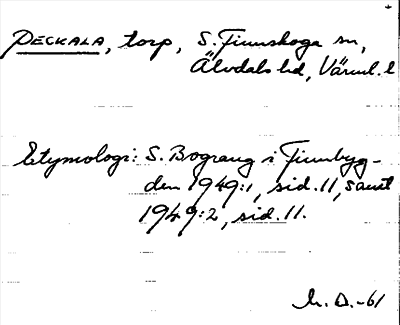 PECKALA, torp, S. Finnskoga sn,
Älvdals hd, Värml. l
Etymologi: S. Bograng i Finnbyg-
den 1949:1, sid. 11, samt
1949:2, sid. 11.
h. D. -61